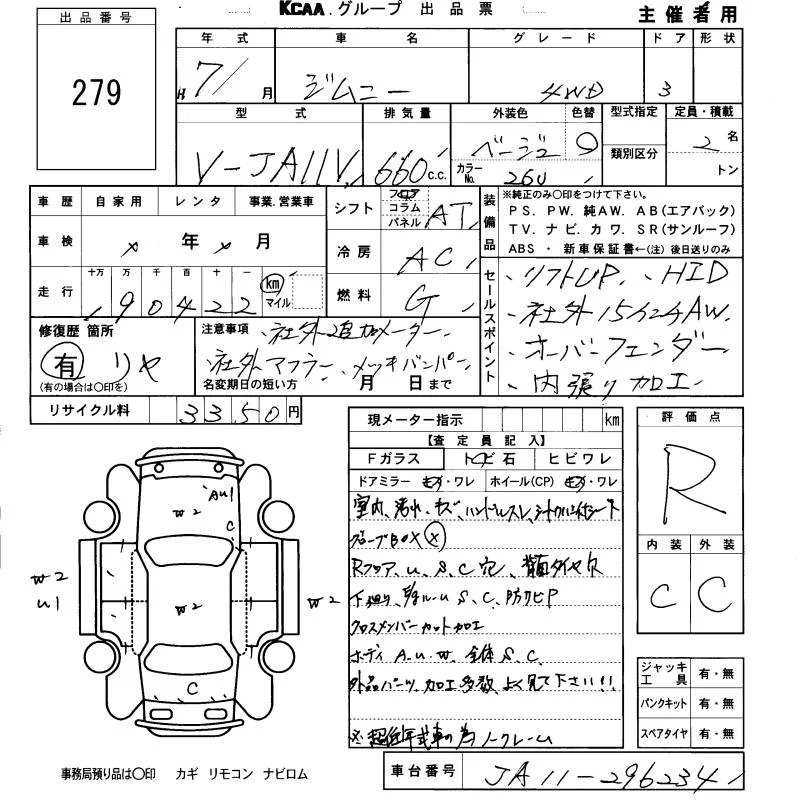 KCAA.グループ 出品票
主催者用
出品番号
279
年式 車名 グレード ドア 形状
H 7/ 月 ジムニー 4WD 3
型式 排気量 外装色 色替 型式指定 定員・積載
V-JA11V 660 c.c. ベージュ 類別区分 2名
カラーNo. 26U トン
車歴 自家用 レンタ 事業.営業車
車検 × 年 × 月
走行 十万 万 千 百 十 一
90422 km マイル
シフト フロア コラム パネル AT
冷房 AC
燃料 G
装備品
※純正のみ〇印をつけて下さい。
PS. PW. 純AW. AB(エアバック)
TV. ナビ. カワ. SR(サンルーフ)
ABS ・ 新車保証書←(注) 後日送りのみ
セールスポイント
・リフトUP. ・HID
・社外15インチAW.
・オーバーフェンダー
・内張り加工
修復歴 箇所
有 リヤ
(有の場合は〇印を)
注意事項 ・社外追加メーター.
社外マフラー. メッキバンパー
名変期日の短い方 月 日まで
リサイクル料 3350円
現メーター指示 km
【査定員記入】
Fガラス トビ石 ヒビワレ
ドアミラー キズ・ワレ ホイール(CP) キズ・ワレ
室内、汚れ、キズ、ハンドルスレ、
グローブBOX ×
Rフロア、U、S、C穴、背面タイヤ欠
S、C、防サビP
クロスメンバーカット加工
ボディA.U.W.全体S、C
外品パーツ、加工多数、よく見て下さい!!
※超低年式車の為ノークレーム
評価点
R
内装 外装
C C
ジャッキ 工具 有・無
パンクキット 有・無
スペアタイヤ 有・無
AU1
W2
C
W2
U1
W2
W2
C
事務局預り品は〇印 カギ リモコン ナビロム
車台番号 JA11-296234